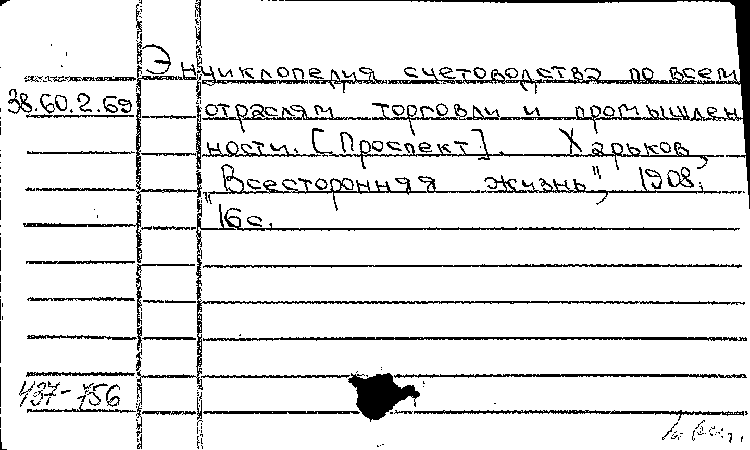 Энциклопедия счетоводства по всем
38.60.2.69 отраслям торговли и промышлен
ности. [Проспект]. Харьков,
"Всесторонняя жизнь", 1908,
16с.
437-756